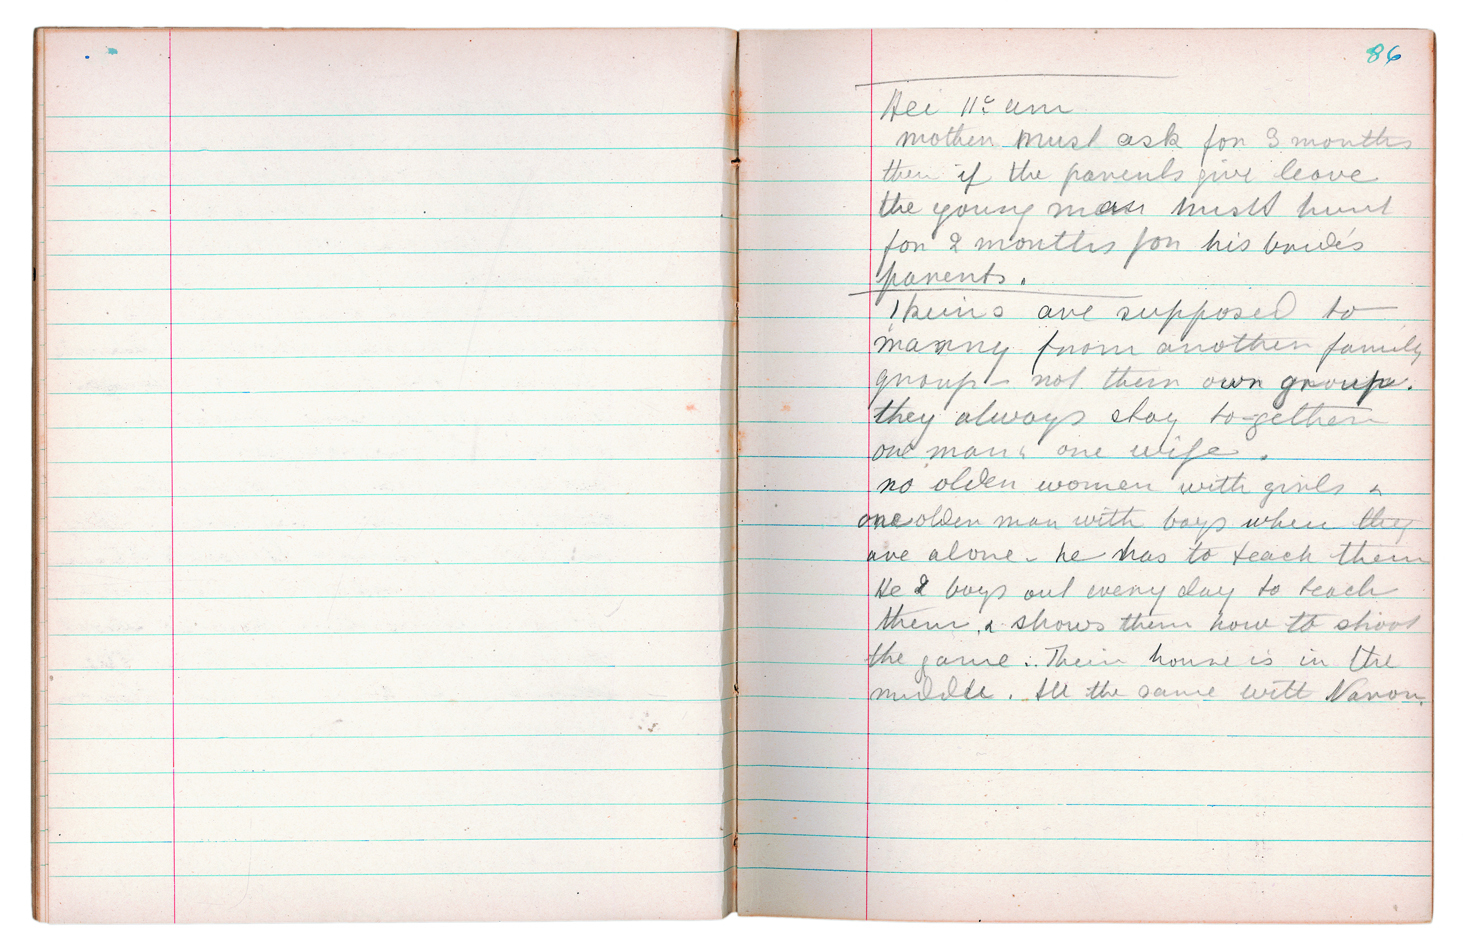 86
Hei 11c um
mother must ask for 3 months
then if the parents give leave
the young man must hunt
for 2 months for his bride's
parents.
Ikuins are supposed to
marry from another family
group - not their own group.
they always stay to-gether
one man & one wife.
no older women with girls &
one older man with boys when they
are alone - he has to teach them
He & boys out every day to teach
them, & shows them how to shoot
the game. Their house is in the
middle. All the same with Naron.